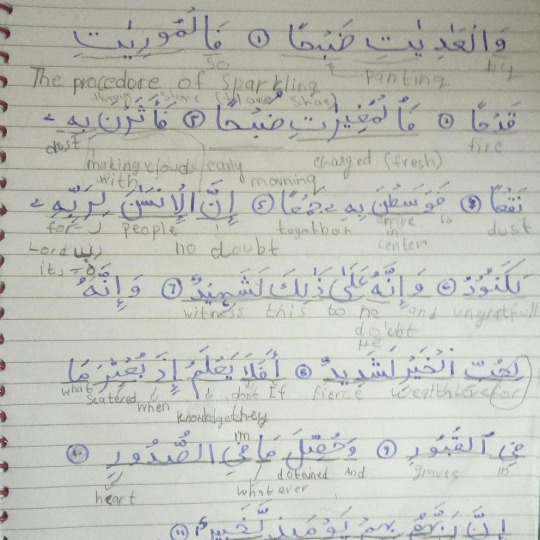 وَالْعَٰدِيَٰتِ ضَبْحًا ① فَالْمُورِيَٰتِ
So panting by
The procedore of Sparkling
stone
قَدْحًا ② فَالْمُغِيرَٰتِ صُبْحًا ③ فَأَثَرْنَ بِهِ
dust making clouds early charged (fresh) fire
with morning
نَقْعًا ④ فَوَسَطْنَ بِهِ جَمْعًا ⑤ إِنَّ الْإِنسَٰنَ لِرَبِّهِ
for people togathan dust
Lord no doubt in center
its
لَكَنُودٌ ⑥ وَإِنَّهُ عَلَىٰ ذَٰلِكَ لَشَهِيدٌ ⑦ وَإِنَّهُ
witness this to he and ungratfull
doubt
He
لِحُبِّ الْخَيْرِ لَشَدِيدٌ ⑧ أَفَلَا يَعْلَمُ إِذَا بُعْثِرَ مَا
what Scatered when dont If fierce wealth love for
knowledge they
فِي الْقُبُورِ ⑨ وَحُصِّلَ مَا فِي الصُّدُورِ ⑩
I'm obtained And graves in
heart whatever
إِنَّ رَبَّهُم بِهِمْ يَوْمَئِذٍ لَّخَبِيرٌ ⑪